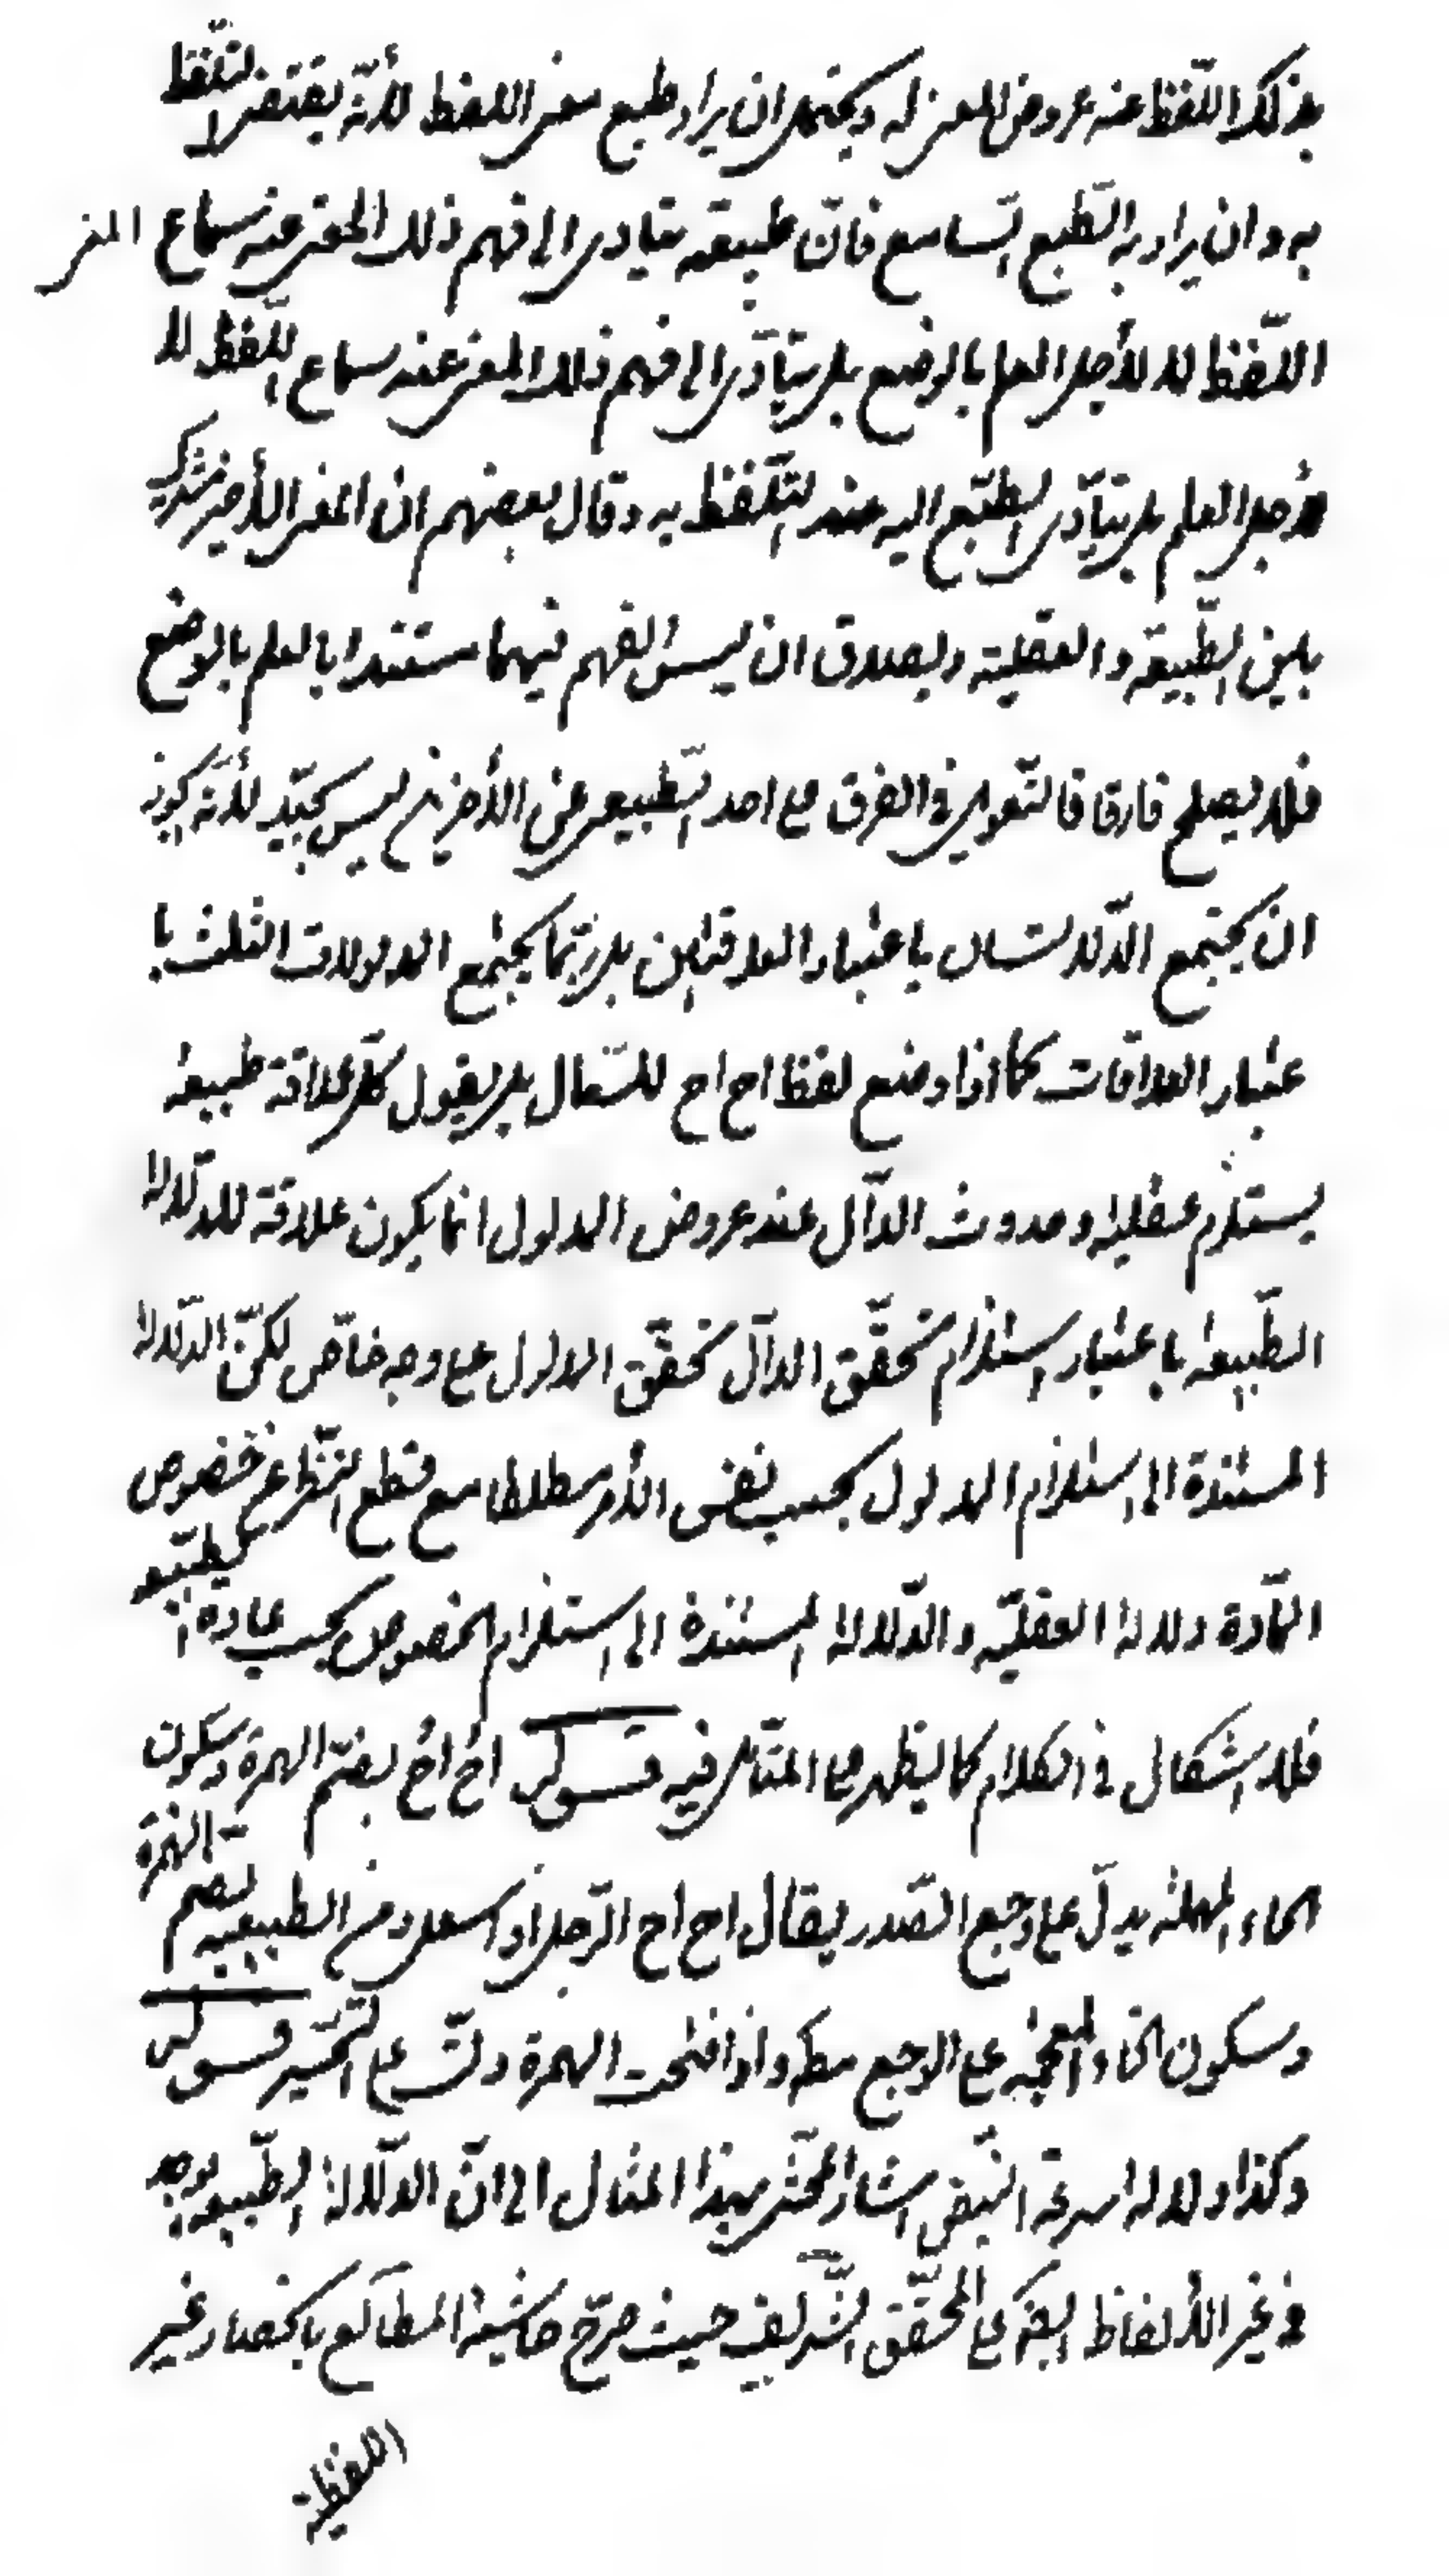 بذلك اللّفظ عند عروض المعنى له ويحتمل ان يراد طبع معنى اللفظ لأنّه يقتضى التلفّظ
به وان يراد به الطّبع السّامع فانّ طبيعته يتأدى الى فهم ذلك المعنى عند سماع
اللّفظ لا لأجل العلم بالوضع بل يتأدّى الى فهم ذلك المعنى عند سماع اللّفظ لا
لأجل العلم بل يتأدّى الطّبع اليه عند التّلفّظ به وقال بعضهم ان المعنى الأخير مشترك
بين الطّبيعة والعقلية ويصدق ان ليس الفهم فيهما مستندا بالعلم بالوضع
فلا يصلح فارقا فالتّعويل فى الفرق مع احد الطّبيعى عن الأخرين ليس بجيّد لأنّه يجوز
ان يجتمع الدّلالتان باعتبار العلاقتين بل ربّما يجتمع الدلالات الثلث با
عتبار العلاقات كما اذا وضع لفظ اح اح للسّعال بل يقول كلّ علاقة طبيعة
يستلزم عقلية وحدوث الدّال عند عروض المدلول انما يكون علاقة للدّلالة
الطّبيعة باعتبار استلزام تحقّق الدّال تحقّق المدلول على وجه خاصّ لكنّ الدّلالة
المستندة الى استلزام المدلول بحسب نفس الأمر مطلقا مع قطع النّظر عن خصوص
المّادة دلالة العقليّة والدّلالة المستندة الى استلزام المخصوص بحسب عادة الطّبيعة
فلا اشكال فى الكلام كما يظهر على المتأمّل فيه قوله اح اح بفتح الهمزة وسكون
الحاء المهملة يدلّ على وجع الصّدر يقال اح اح الرّجل اذا سعل ومن الطبيعية بضم الهمزة
وسكون الخاء المعجمة على الوجع مطلقا واذا فتحت الهمزة دلّت على التّحسّر قوله
وكذا دلالة سرعة النّبض اشار المحشّى بهذا المثال الى انّ الدّلالة الطّبيعية يوجد
فى غير الألفاظ المحقّق الشّريف حيث صرّح حاشية المطالع بانحصار غير
اللفظية